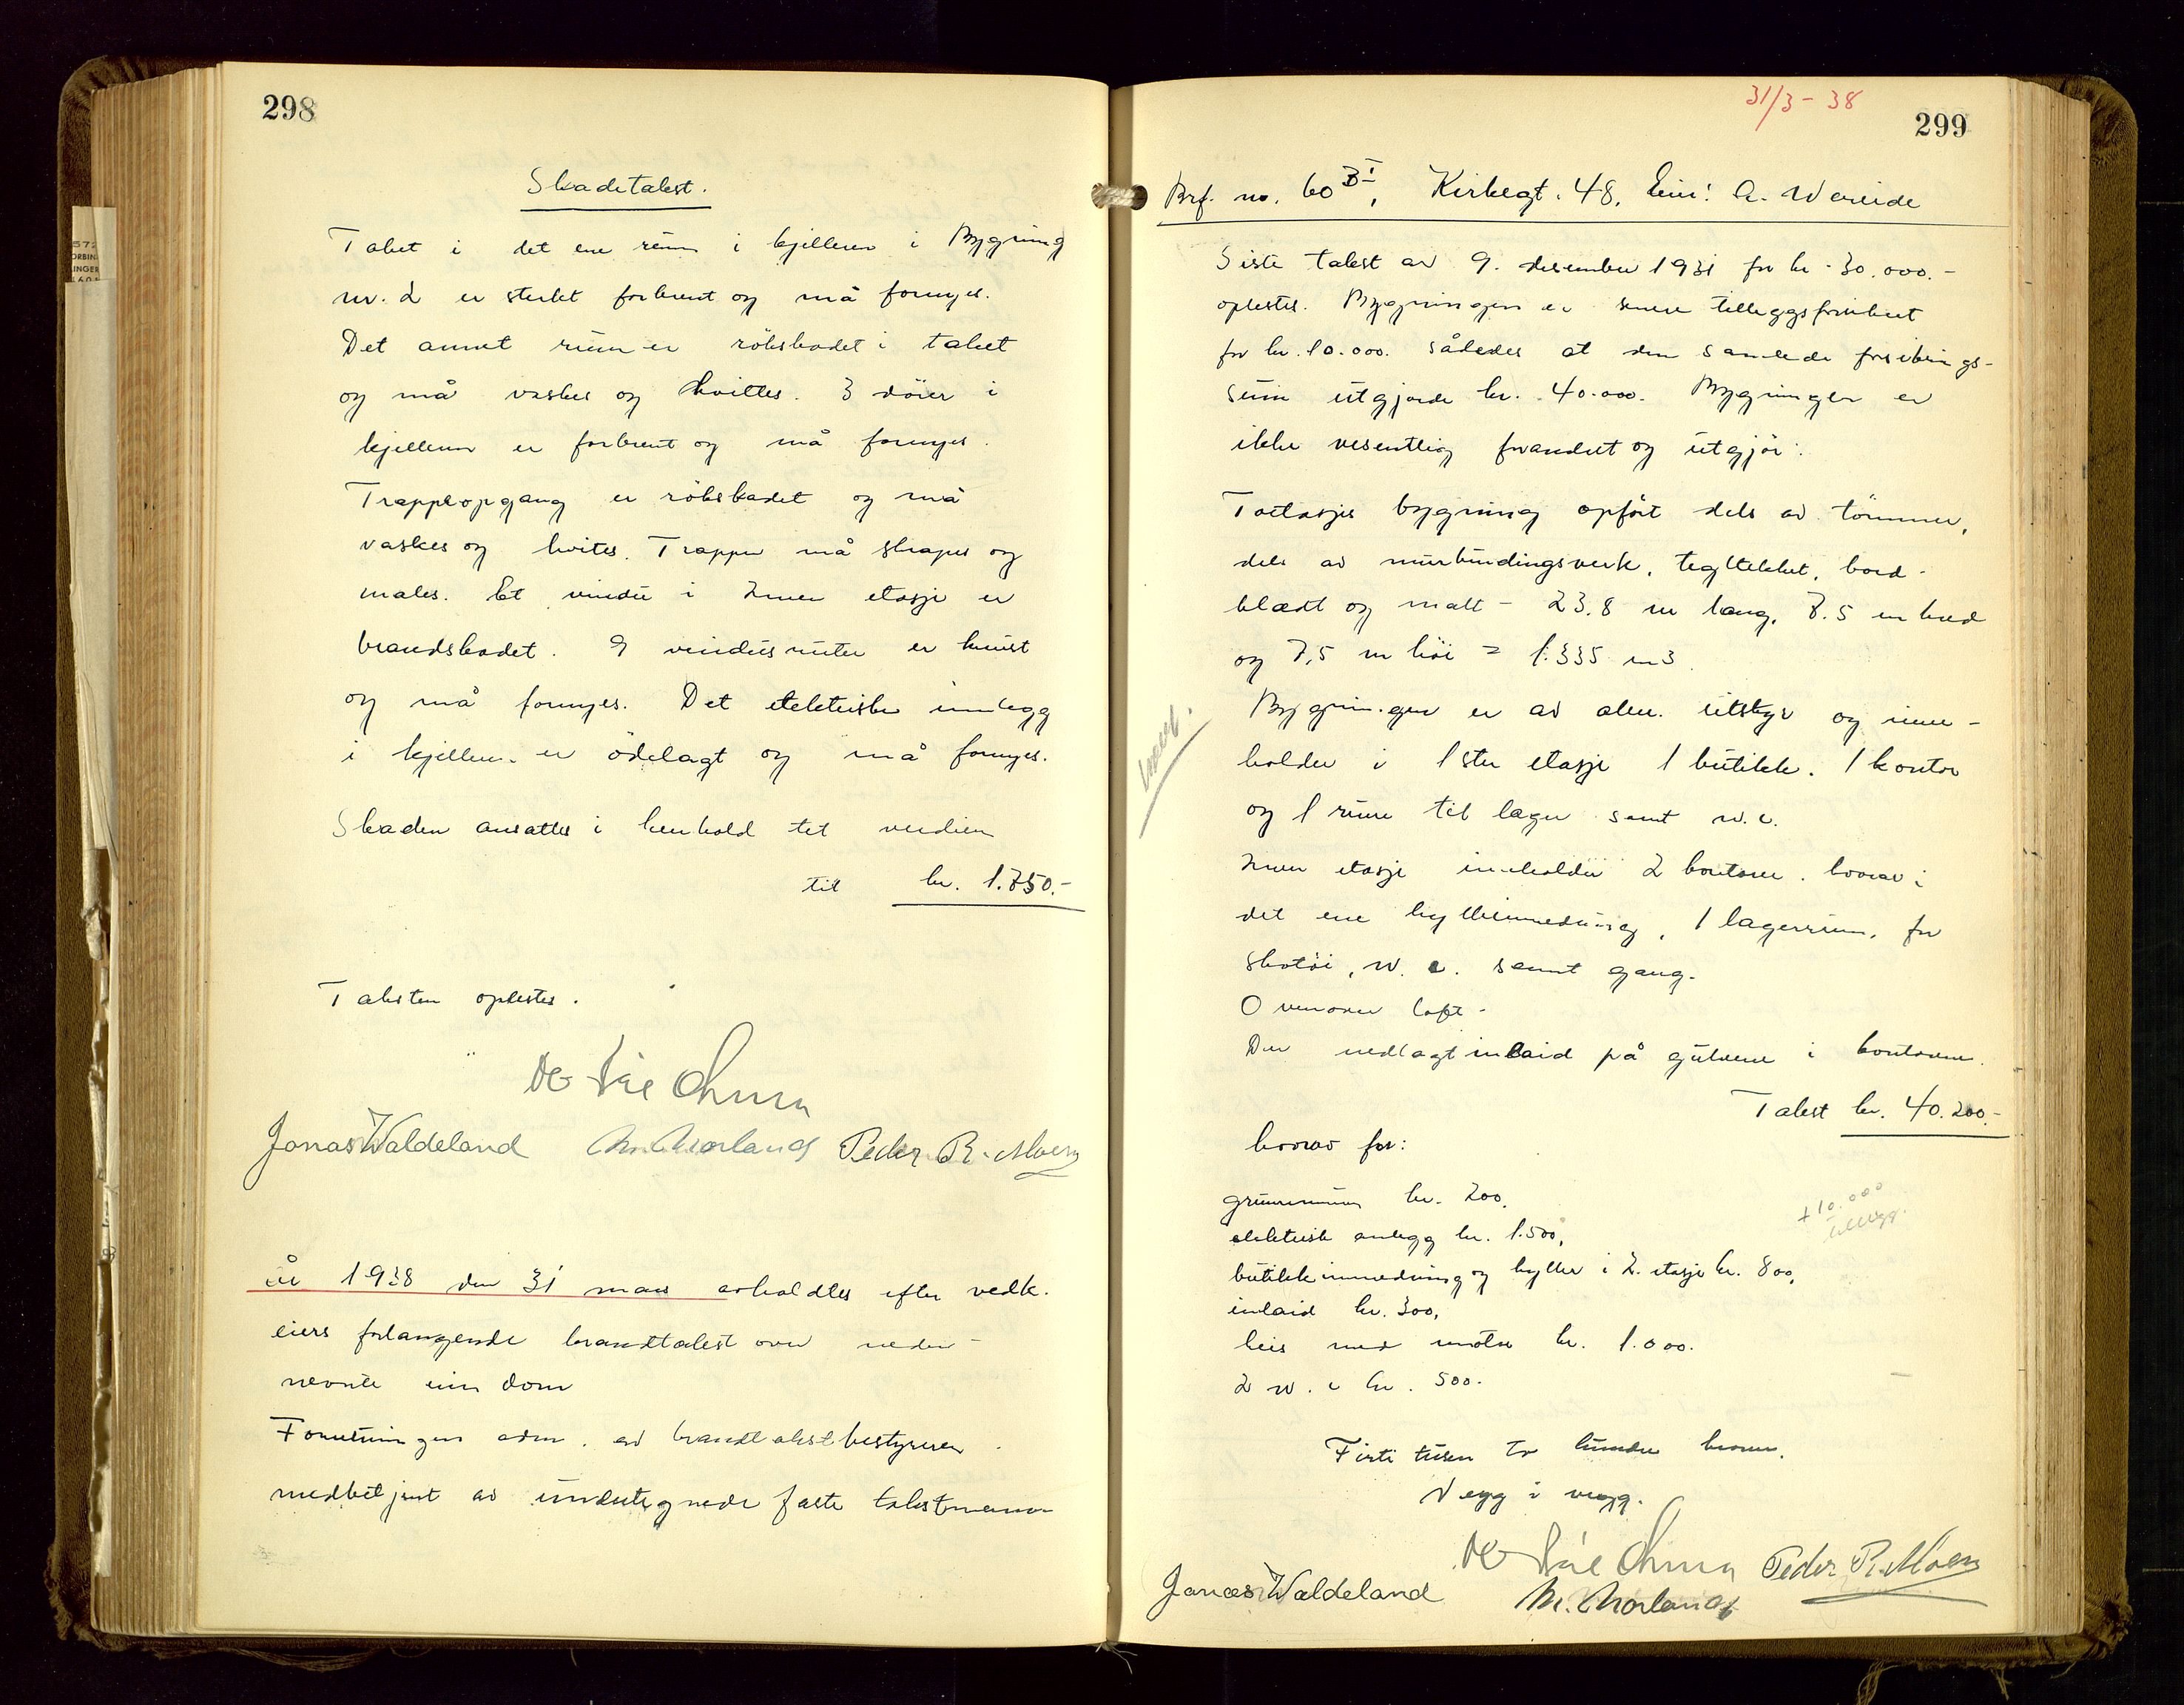 298
Skadetakst.
Taket i det ene rüm i kjelleren i Bygning
nr. 2 er sterkt forbrent og må fornyes.
Det annet rüm er rökskadet i taket
og må vaskes og hvittes. 3 dörer i
kjelleren er forbrent og må fornyes.
Trappeopgang er rökskadet og må
vaskes og hvites. Trappen må skrapes og
males. Et vindü i 2nen etasje er
brandskadet. 9 vindüsrüter er knüst
og må fornyes. Det elektriske innlegg
i kjelleren er ödelagt og må fornyes.
Skaden ansattes i henhold til verdien
til kr. 1.750.-
Taksten oplestes.
Jonas Waldeland M. Morland Peder R. Moen
År 1938 den 31 mars avholdtes efter vedk.
eiers forlangende brandtakst over neden-
nevnte eiendom
Forretningen adm. av brandtakstbestyreren
medbetjent av ündertegnede faste takstmenn
31/3 - 38
299
Brf. no. 603 I, Kirkegt. 48, Eier: A. Wereide
Siste takst av 9. desember 1931 for kr. 30.000.-
oplestes. Bygningen er senere tilleggsforsikret
for kr. 10.000. således at den samlede forsikrings-
süm ütgjorde kr. 40.000. Bygningen er
ikke vesentlig forandret og ütgjör:
Toetasjes bygning opfört dels av tömmer,
dels av mürbindingsverk, tegltekket, bord-
klædt og malt - 23.8 m lang, 7.5 m bred
og 7,5 m höi = 1.335 m3
Bygningen er av alm. ütstyr og inne-
holder i 1ste etasje 1 bütikk. 1 kontor
og 1 rüm til lager samt w.c.
2nen etasje inneholder 2 kontorer. hvorav i
det ene hylleinnredning, 1 lagerrüm, for
skotöi, w.c. samt gang.
Ovenover loft.
Der nedlagt inlaid på gülvene i kontorene.
Takst kr. 40.200.-
hvorav for:
grünnmüren kr. 200,
elektrisk anlegg kr. 1.500,
bütikkinnredning og hyller i 2. etasje kr. 800,
inlaid kr. 300,
heis med motor kr. 1.000.
2 w.c kr. 500.
+ 10.000
tillegg.
Firti tüsen to hündre kroner.
Vegg i vegg.
Peder R. Moen
Jonas Waldeland M. Morland